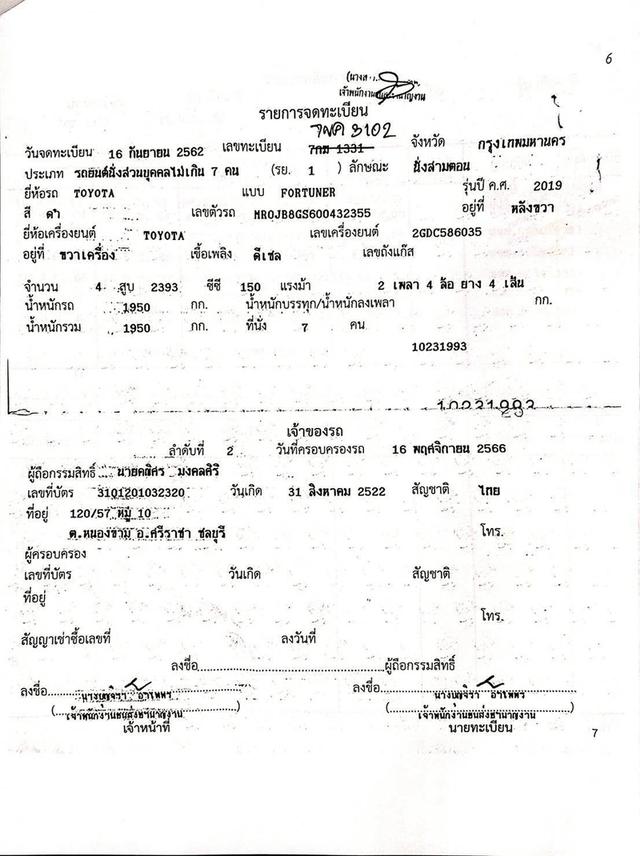 6
(นางส
เจ้าพนักงานขนส่งชำนาญงาน
รายการจดทะเบียน
3102
วันจดทะเบียน 16 กันยายน 2562 เลขทะเบียน 7กฆ 1331 จังหวัด กรุงเทพมหานคร
ประเภท รถยนต์นั่งส่วนบุคคลไม่เกิน 7 คน (รย. 1 ) ลักษณะ นั่งสามตอน
ยี่ห้อรถ TOYOTA แบบ FORTUNER รุ่นปี ค.ศ. 2019
สี ดำ เลขตัวรถ MR0JB8GS600432355 อยู่ที่ หลังขวา
ยี่ห้อเครื่องยนต์ TOYOTA เลขเครื่องยนต์ 2GDC586035
อยู่ที่ ขวาเครื่อง เชื้อเพลิง ดีเซล เลขถังแก๊ส
จำนวน 4 สูบ 2393 ซีซี 150 แรงม้า 2 เพลา 4 ล้อ ยาง 4 เส้น
น้ำหนักรถ 1950 กก. น้ำหนักบรรทุก/น้ำหนักลงเพลา กก.
น้ำหนักรวม 1950 กก. ที่นั่ง 7 คน
10231993
เจ้าของรถ
ลำดับที่ 2 วันที่ครอบครองรถ 16 พฤศจิกายน 2566
ผู้ถือกรรมสิทธิ์ มงคลศิริ
เลขที่บัตร 3101201032320 วันเกิด 31 สิงหาคม 2522 สัญชาติ ไทย
ที่อยู่ 120/57 หมู่ 10
ต.หนองขาม อ.ศรีราชา ชลบุรี โทร.
ผู้ครอบครอง
เลขที่บัตร วันเกิด สัญชาติ
ที่อยู่
โทร.
สัญญาเช่าซื้อเลขที่ ลงวันที่
ลงชื่อ ผู้ถือกรรมสิทธิ์
ลงชื่อ ลงชื่อ
(เจ้าพนักงานขนส่งชำนาญงาน) (เจ้าพนักงานขนส่งชำนาญงาน)
เจ้าหน้าที่ นายทะเบียน
7